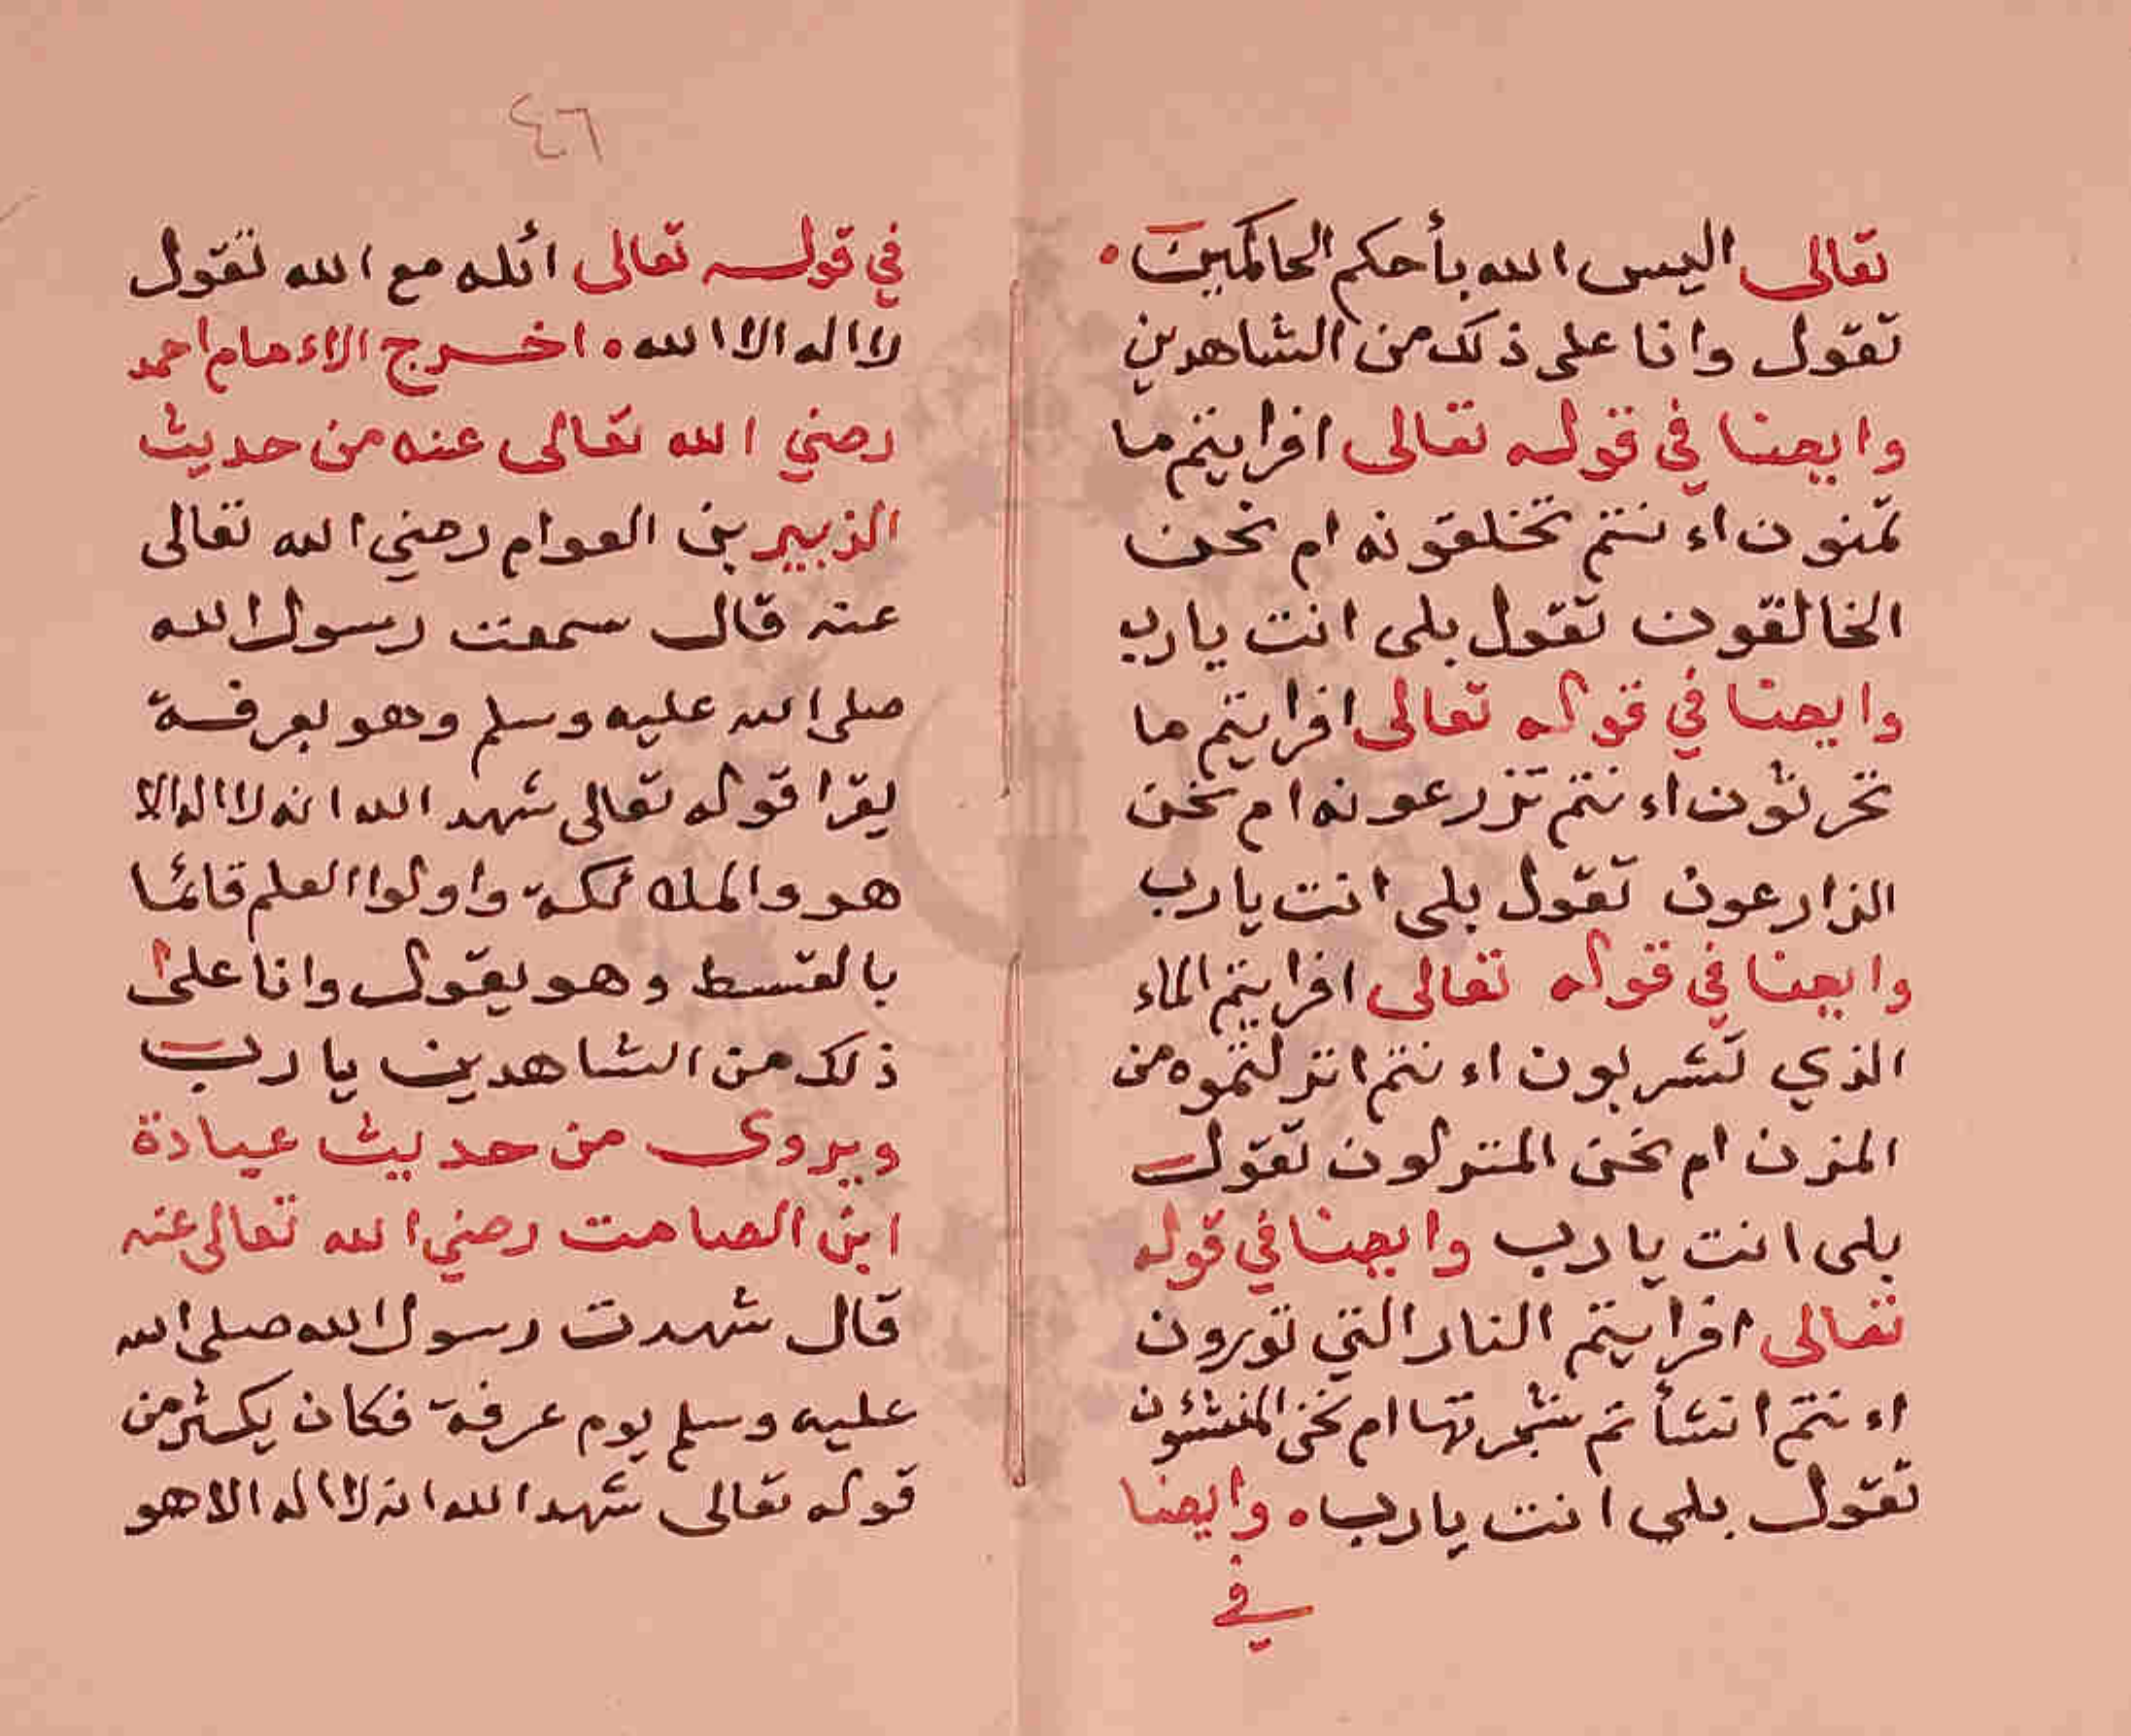 تعالى اليس الله بأحكم الحاكمين .
تقول وانا على ذلك من الشاهدين
وايضا في قوله تعالى افرايتم ما
تمنون اء نتم تخلقونه ام نحن
الخالقون تقول بلى انت يارب
وايضا في قوله تعالى افرايتم ما
تحرثون اء نتم تزرعونه ام نحن
الزارعون تقول بلى انت يارب
وايضا في قوله تعالى افرايتم الماء
الذي تشربون اء نتم انزلتموه من
المزن ام نحن المنزلون تقول
بلى انت يارب وايضا في قوله
تعالى افرايتم النار التي تورون
اء نتم انشأتم شجرتها ام نحن المنشئون
تقول بلي انت يارب . وايضا
في
٤٦
في قوله تعالى ائله مع الله تقول
لا اله الا الله . اخرج الاء مام احمد
رضي الله تعالى عنه من حديث
الزبير بن العوام رضي الله تعالى
عنه قال سمعت رسول الله
صلى الله عليه وسلم وهو بعرفة
يقرا قوله تعالى شهد الله انه لا اله الا
هو والملائكة واولوا العلم قائما
بالقسط وهو يقول وانا على
ذلك من الشاهدين يا رب
ويروى من حديث عبادة
ابن الصامت رضي الله تعالى عنه
قال شهدت رسول الله صلى الله
عليه وسلم يوم عرفة فكان يكثر من
قوله تعالى شهد الله انه لا اله الا هو